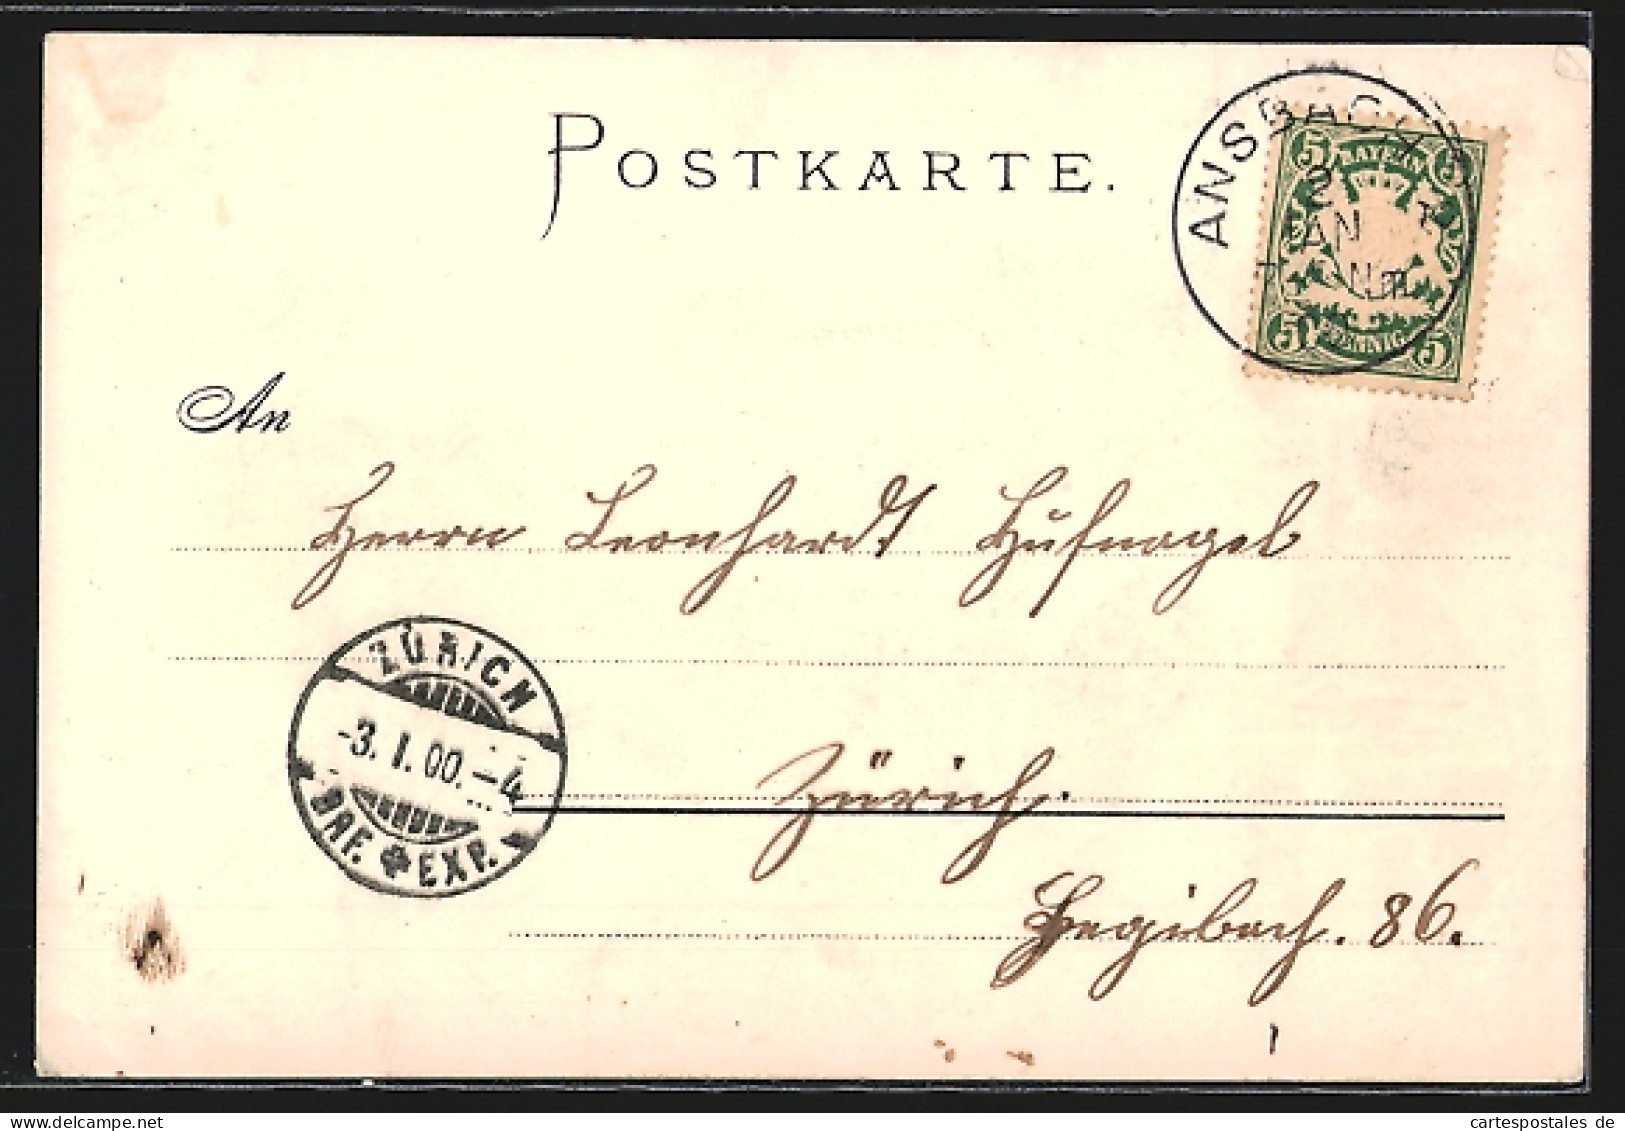 POSTKARTE.
ANSBACH
2
JAN
5 BAYERN 5
5 PFENNIG 5
An
Herrn Leonhardt Hufnagel
ZÜRICH
-3. I. 00. -4
BRF. EXP.
Zürich.
Hegibach. 86.
cartespostales de